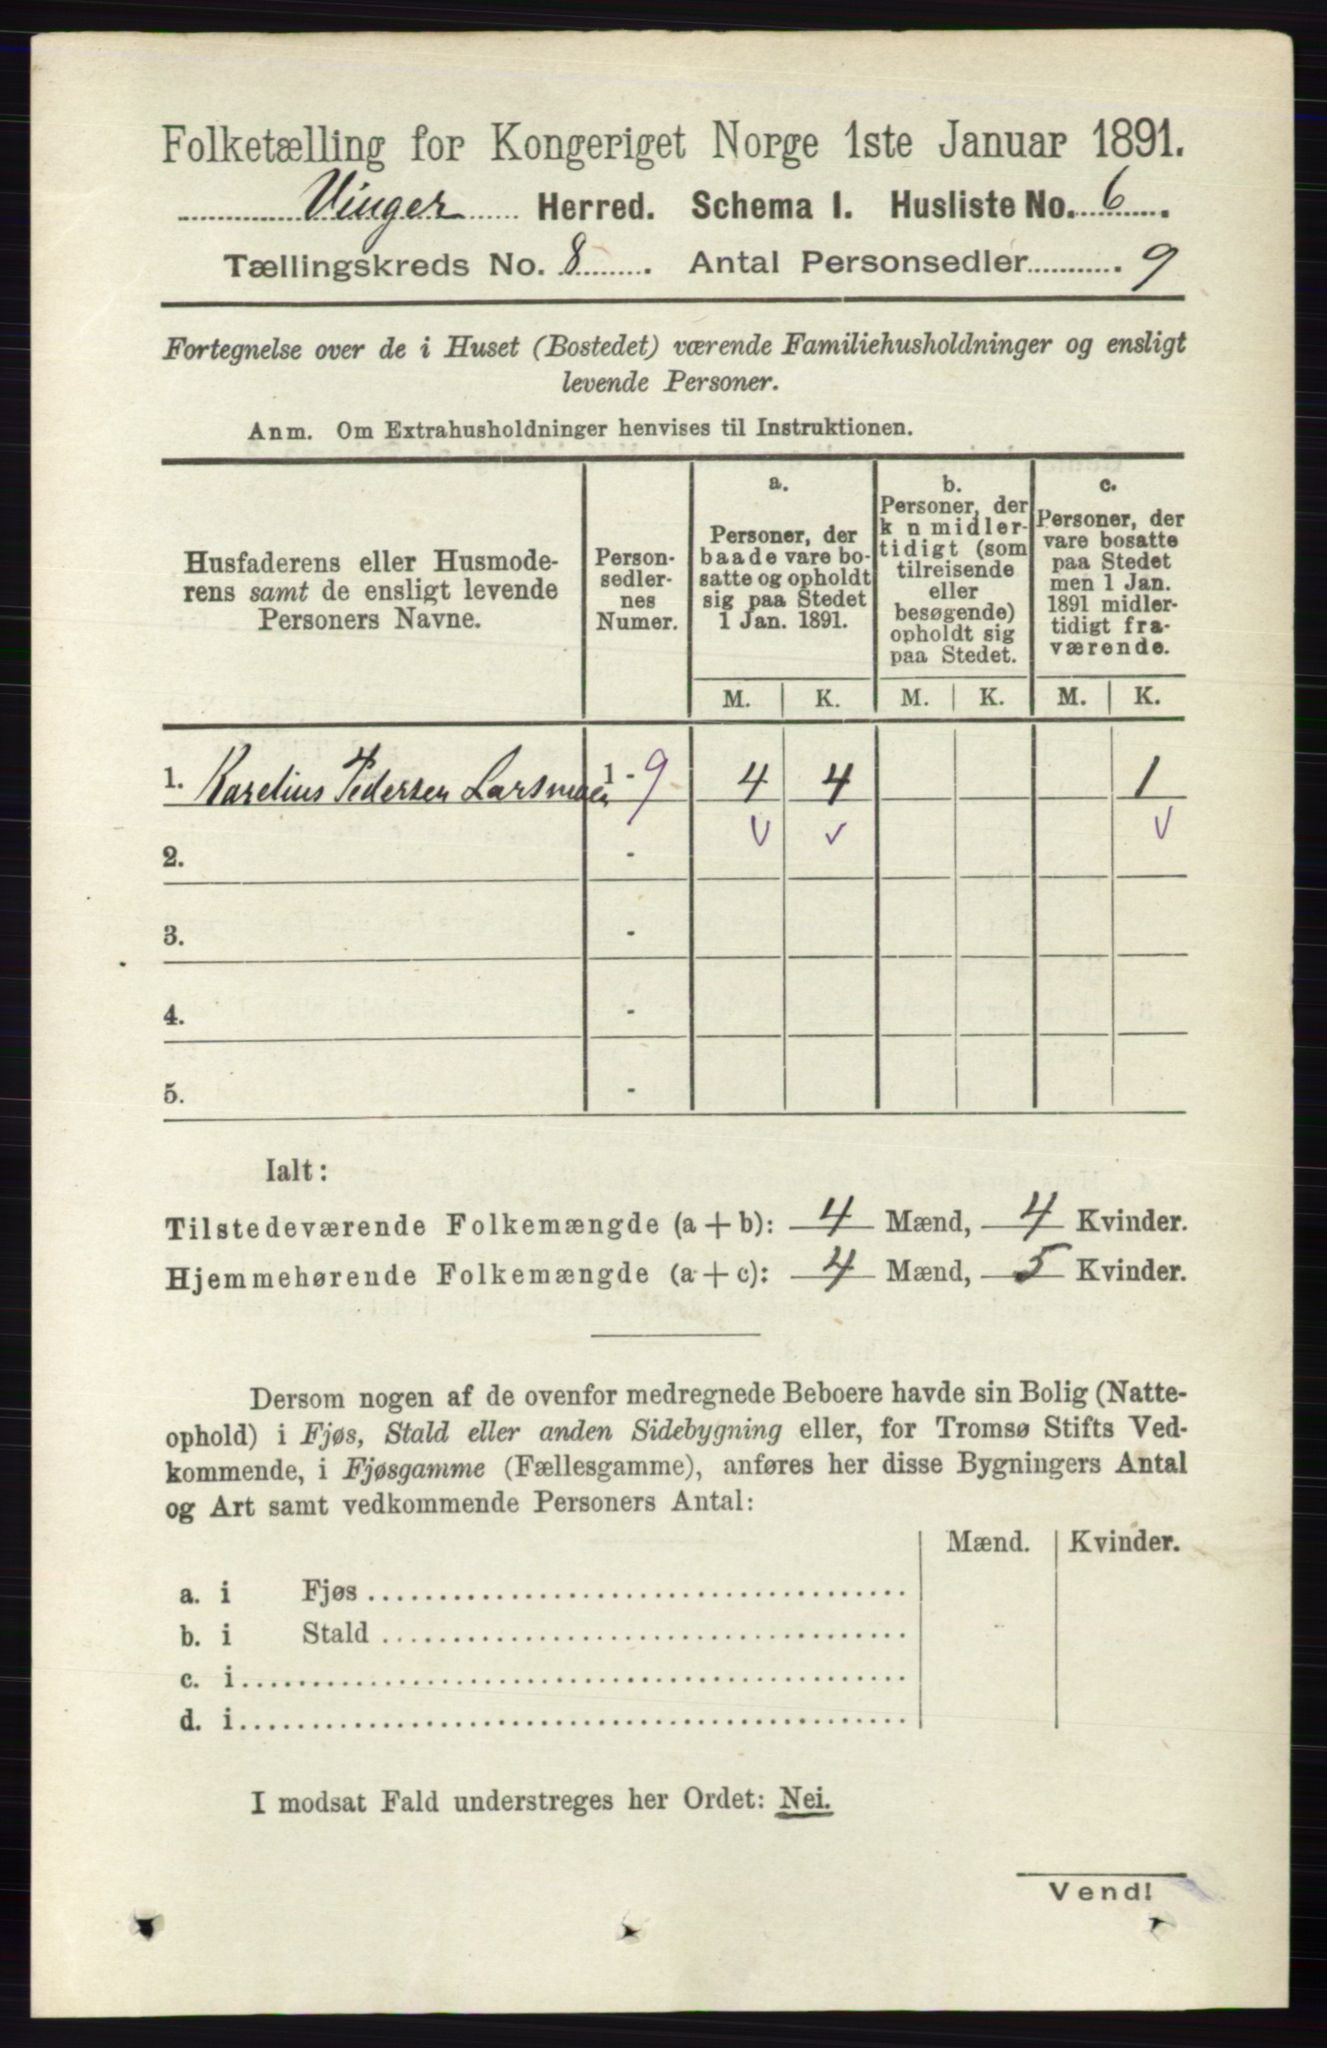 Folketælling for Kongeriget Norge 1ste Januar 1891.
Vinger Herred. Schema 1. Husliste No. 6.
Tællingskreds No. 8. Antal Personsedler 9
Fortegnelse over de i Huset (Bostedet) værende Familiehusholdninger og ensligt
levende Personer.
Anm. Om Extrahusholdninger henvises til Instruktionen.
Husfaderens eller Husmode-
rens samt de ensligt levende
Personers Navne.
Person-
sedler-
nes
Numer.
a.
Personer, der
baade vare bo-
satte og opholdt
sig paa Stedet
1 Jan. 1891.
b.
Personer, der
k n midler-
tidigt (som
tilreisende
eller
besøgende)
opholdt sig
paa Stedet.
c.
Personer, der
vare bosatte
paa Stedet
men 1 Jan.
1891 midler-
tidigt fra-
værende.
M. K. M. K. M. K.
1. Karelius Pedersen Larsmoen 1-9 4 4 1
2. -
3. -
4. -
5. -
Ialt:
Tilstedeværende Folkemængde (a + b): 4 Mænd, 4 Kvinder.
Hjemmehørende Folkemængde (a + c): 4 Mænd, 5 Kvinder.
Dersom nogen af de ovenfor medregnede Beboere havde sin Bolig (Natte-
ophold) i Fjøs, Stald eller anden Sidebygning eller, for Tromsø Stifts Ved-
kommende, i Fjøsgamme (Fællesgamme), anføres her disse Bygningers Antal
og Art samt vedkommende Personers Antal:
Mænd. Kvinder.
a. i Fjøs
b. i Stald
c. i
d. i
I modsat Fald understreges her Ordet: Nei.
Vend!